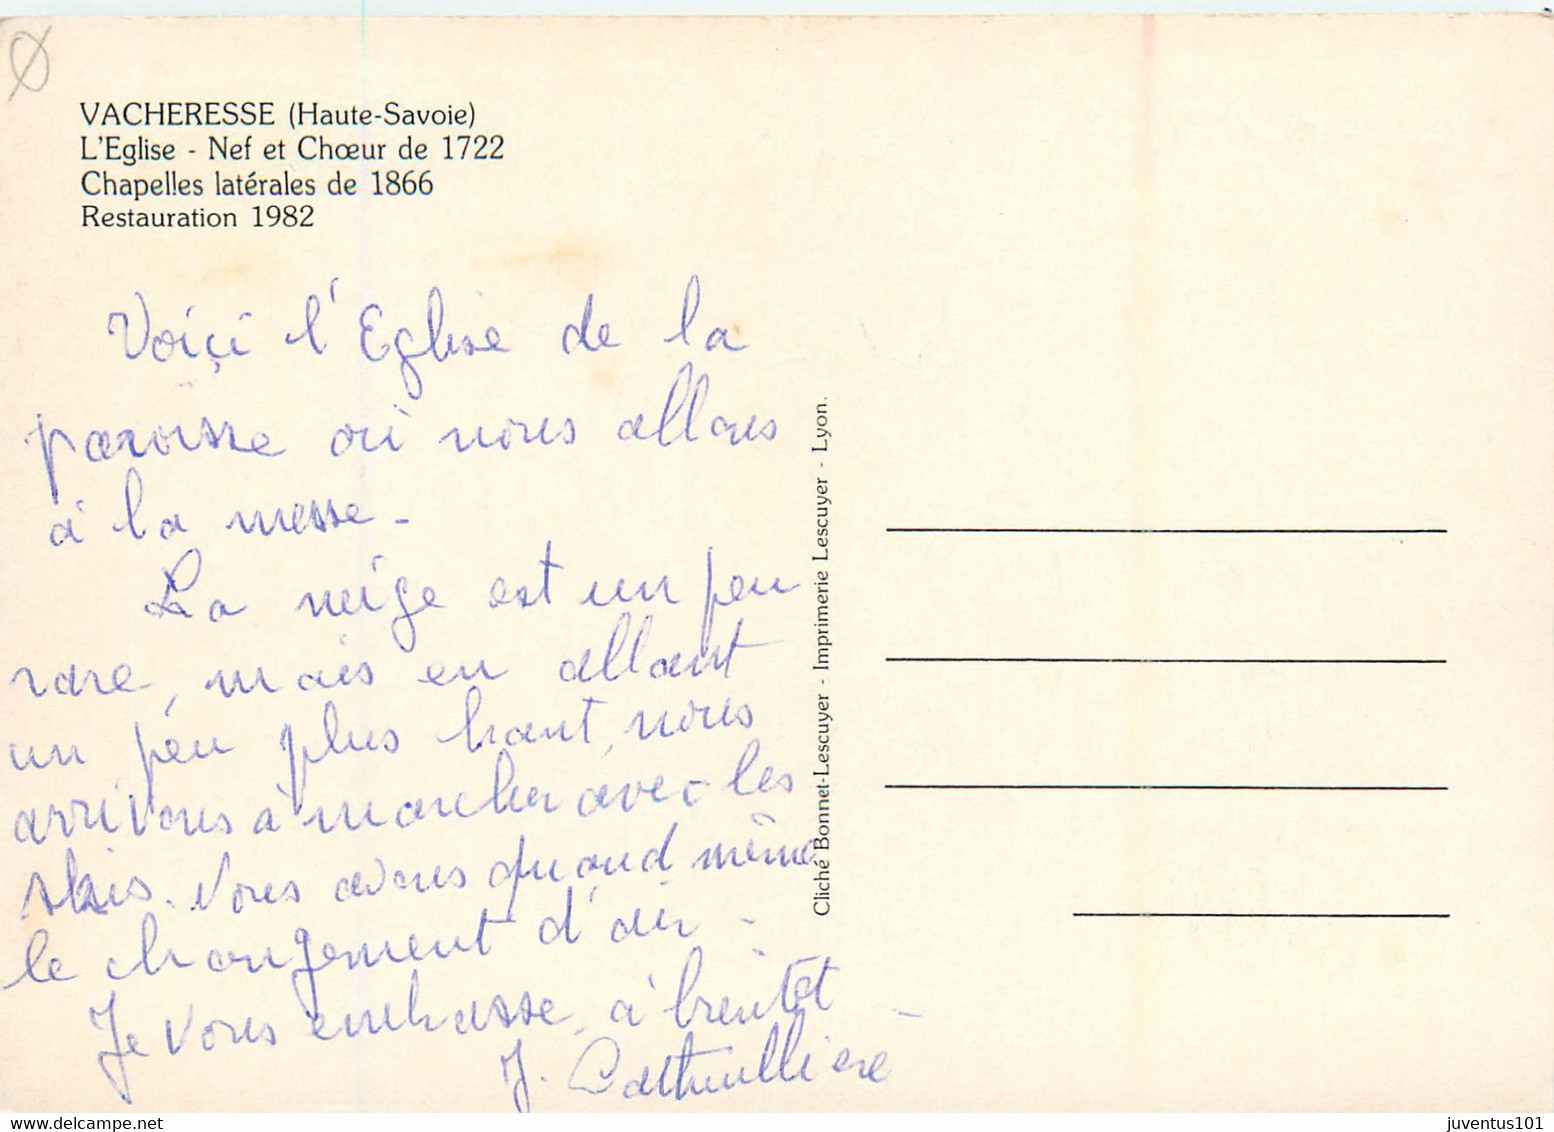 VACHERESSE (Haute-Savoie)
L'Eglise - Nef et Chœur de 1722
Chapelles latérales de 1866
Restauration 1982
Voiçi l'Eglise de la
paroisse où nous allons
à la messe -
La neige est un peu
rare, mais en allant
un peu plus haut, nous
arrivons à marcher avec les
skis. Nous avons quand même
le changement d'air -
Je vous embrasse, à bientôt -
J.
Cliché Bonnet-Lescuyer - Imprimerie Lescuyer - Lyon.
www.delcampe.net
juventus101